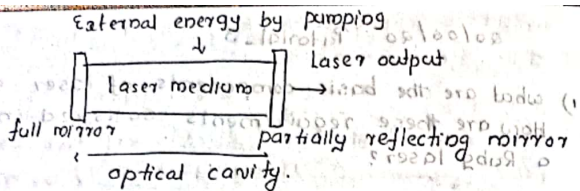 External energy by pumping
Laser output
laser medium
full mirror
partially reflecting mirror
optical cavity.